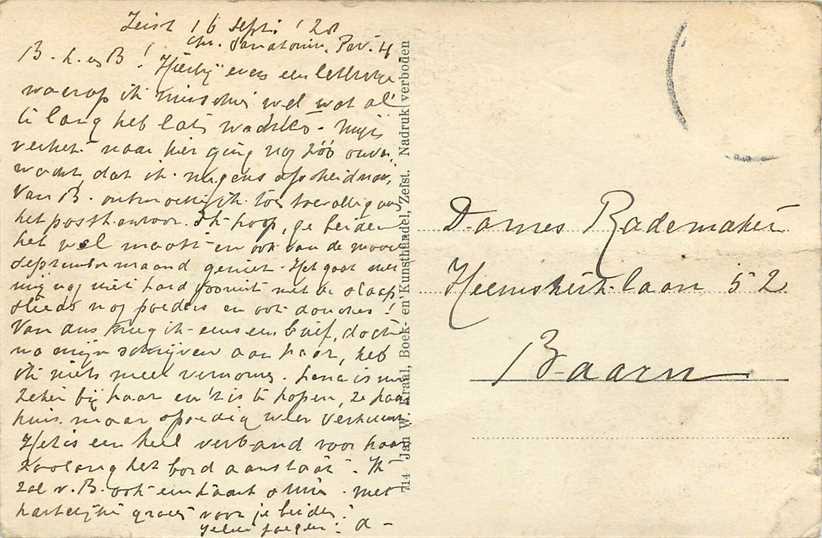 Zeist 16 Sept. '28
Chr. Sanatorium, Pav. 4
B. L. en B! Hierbij even een lettertje
waarop ik misschien wel wat al
te lang heb laten wachten. Mijn
verhuis naar hier ging nog zóó onver-
wachts dat ik nergens afscheid nam,
van B. ontmoette ik toevallig aan
het postkantoor. Ik hoop, ge beiden
het wel maakt en ook van de mooie
September maand geniet. Het gaat met
mij nog niet hard vooruit met de slaap
steeds nog poeders en ook douches!
Van ans kreeg ik eens een brief, doch
na mijn schrijven aan haar, heb
ik niets meer vernomen. Lena is nu
zeker bij haar en 't is te hopen, ze haar
huis maar spoedig weer verhuurt
Het is een heel verband voor haar
zoolang het bord aan staat. Ik
zal v. B. ook een kaart
hartelijke groet voor je beiden!
Dames Rademaker
Heemskerklaan 52
Baarn
714 Jan W. Kraal, Boek- en Kunsthandel, Zeist. Nadruk verboden